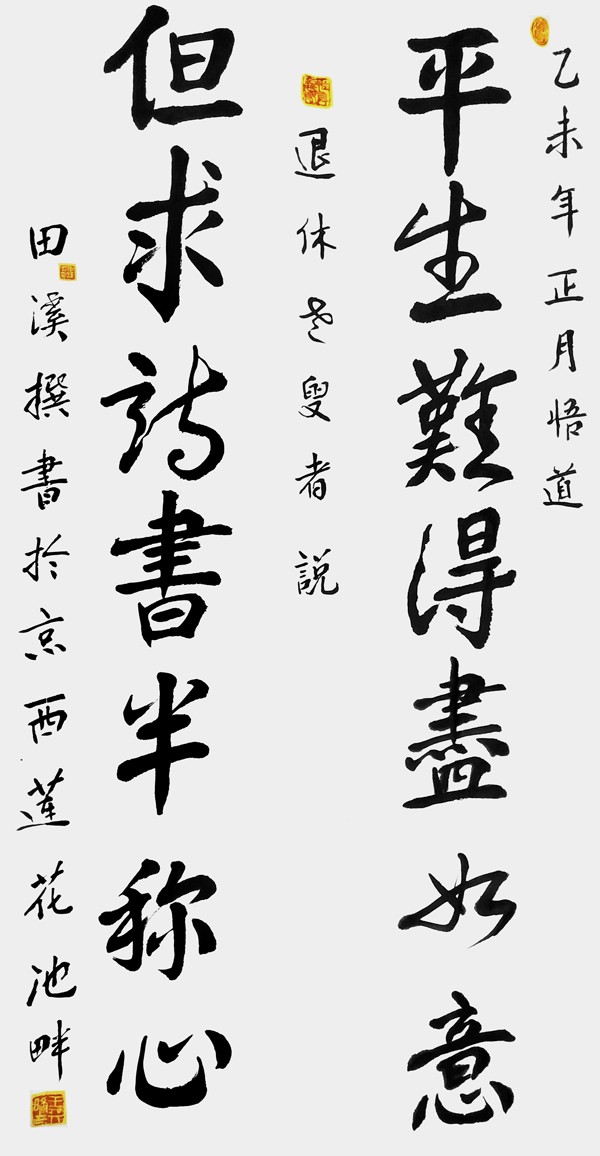 乙未年正月悟道
平生難得盡如意
退休老叟者説
但求詩書半称心
田溪撰書於京西蓮花池畔